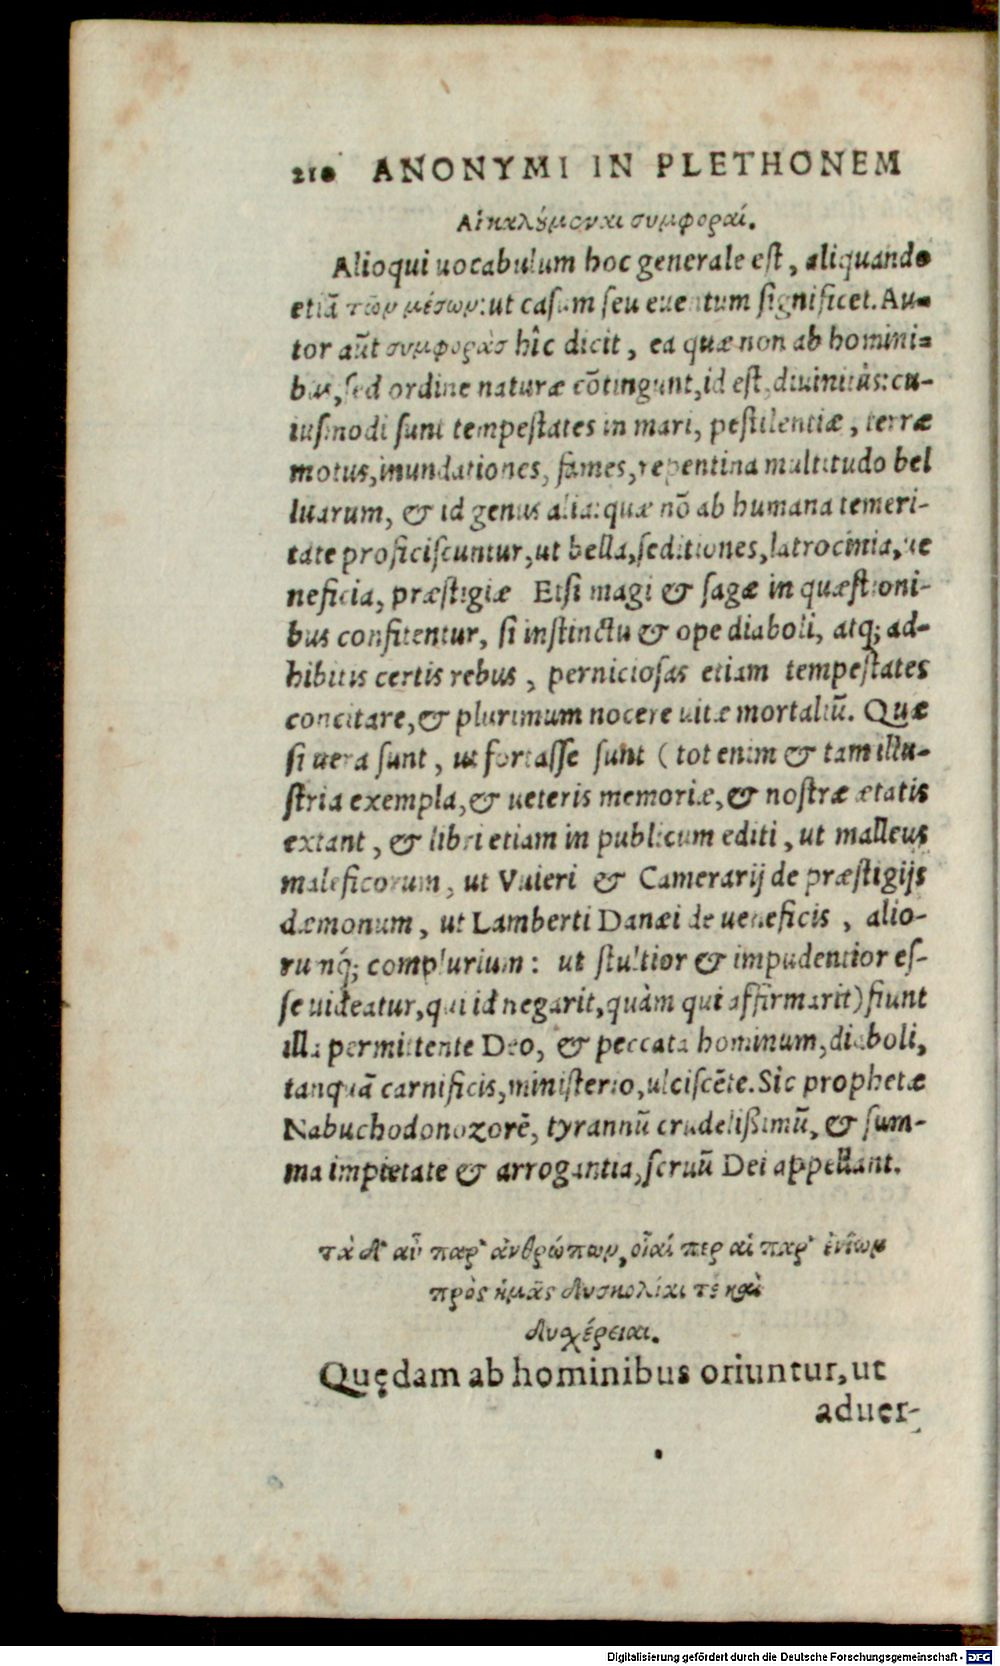 210 ANONYMI IN PLETHONEM
Αἱ καλούμεναι συμφοραί.
Alioqui uocabulum hoc generale est, aliquando
etiā τῶν μέσων: ut casum seu euentum significet. Au-
tor aūt συμφορὰς hîc dicit, ea quæ non ab homini-
bus, sed ordine naturæ cōtingunt, id est, diuinitùs: cu-
iusmodi sunt tempestates in mari, pestilentiæ, terræ
motus, inundationes, fames, repentina multitudo bel
luarum, & id genus alia: quæ nō ab humana temeri-
tate proficiscuntur, ut bella, seditiones, latrocinia, ue
neficia, præstigiæ Etsi magi & sagæ in quæstioni-
bus confitentur, si instinctu & ope diaboli, atq; ad-
hibitis certis rebus, perniciosas etiam tempestates
concitare, & plurimum nocere uitæ mortaliū. Quæ
si uera sunt, ut fortasse sunt (tot enim & tam illu-
stria exempla, & ueteris memoriæ, & nostræ ætatis
extant, & libri etiam in publicum editi, ut malleus
maleficorum, ut Vuieri & Camerarij de præstigijs
dæmonum, ut Lamberti Danæi de ueneficis, alio-
rumq́; complurium: ut stultior & impudentior es-
se uideatur, qui id negarit, quàm qui affirmarit) fiunt
illa permittente Deo, & peccata hominum, diaboli,
tanquā carnificis, ministerio, ulciscēte. Sic prophetæ
Nabuchodonozorē, tyrannū crudelißimū, & sum-
ma impietate & arrogantia, seruū Dei appellant.
τὰ δ' αὖ παρ' ἀνθρώπων, οἷαί περ αἱ παρ' ἐνίων
πρὸς ἡμᾶς δυσκολίαι τε καὶ
δυχέρειαι.
Quędam ab hominibus oriuntur, ut
aduer-
Digitalisierung gefördert durch die Deutsche Forschungsgemeinschaft - DFG